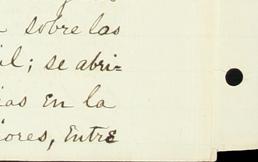 sobre las
il; se abri-
ias en la
iores, entre